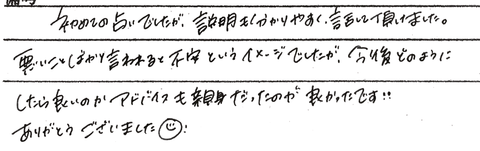 初めての占いでしたが、説明も分かりやすく、話して頂けました。
悪いことばかり言われると不安というイメージでしたが、今後どのように
したら良いのかアドバイスも親身だったのが良かったです!!
ありがとうございました☺!